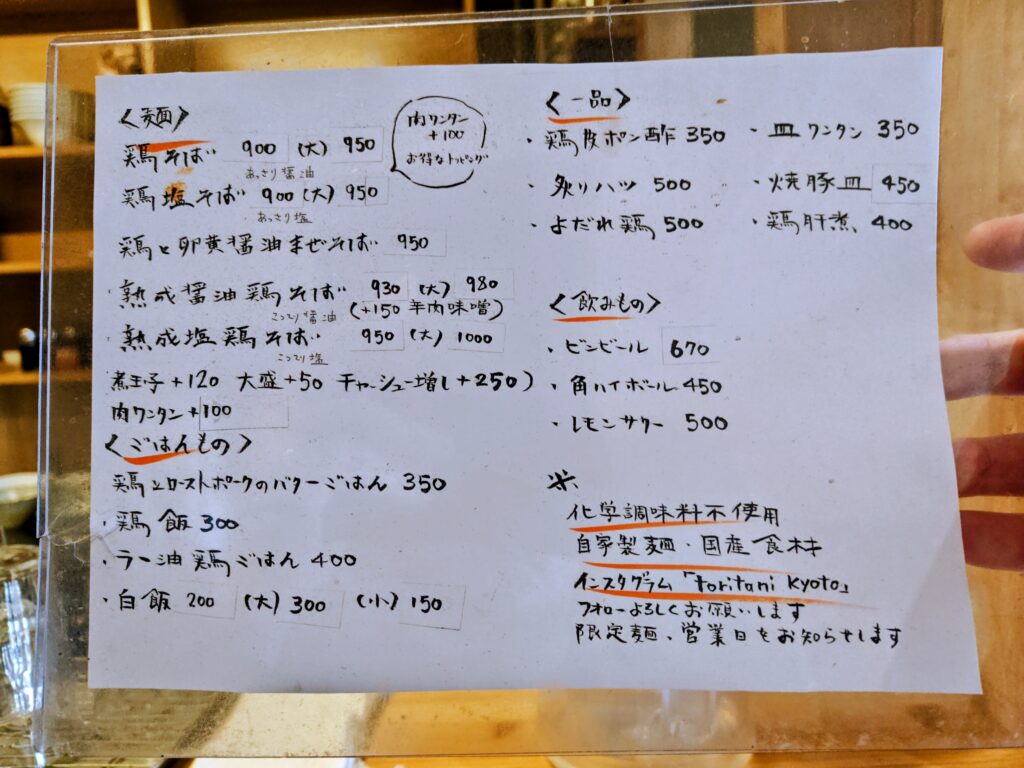 〈麺〉
鶏そば 900 (大) 950
あっさり醤油
鶏塩そば 900 (大) 950
あっさり塩
鶏と卵黄醤油まぜそば 950
熟成醤油鶏そば 930 (大) 980
こってり醤油 (+150 羊肉味噌)
熟成塩鶏そば 950 (大) 1000
こってり塩
煮玉子+120 大盛+50 チャーシュー増し+250)
肉ワンタン+100
肉ワンタン
+100
お得なトッピング
〈ごはんもの〉
鶏とローストポークのバターごはん 350
・鶏飯 300
・ラー油鶏ごはん 400
・白飯 200 (大) 300 (小) 150
〈一品〉
・鶏皮ポン酢 350
・炙りハツ 500
・よだれ鶏 500
・皿ワンタン 350
・焼豚皿 450
・鶏肝煮 400
〈飲みもの〉
・ビンビール 670
・角ハイボール 450
・レモンサワー 500
※
化学調味料不使用
自家製麺・国産食材
インスタグラム「toritani kyoto」
フォローよろしくお願いします
限定麺、営業日をお知らせします